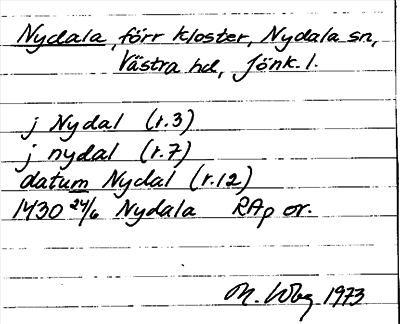 Nydala, förr kloster, Nydala sn,
Västra hd, Jönk. l.
j Nydal (r.3)
j nydal (r.7)
datum Nydal (r.12)
1430 24/6 Nydala RAp or.
1973